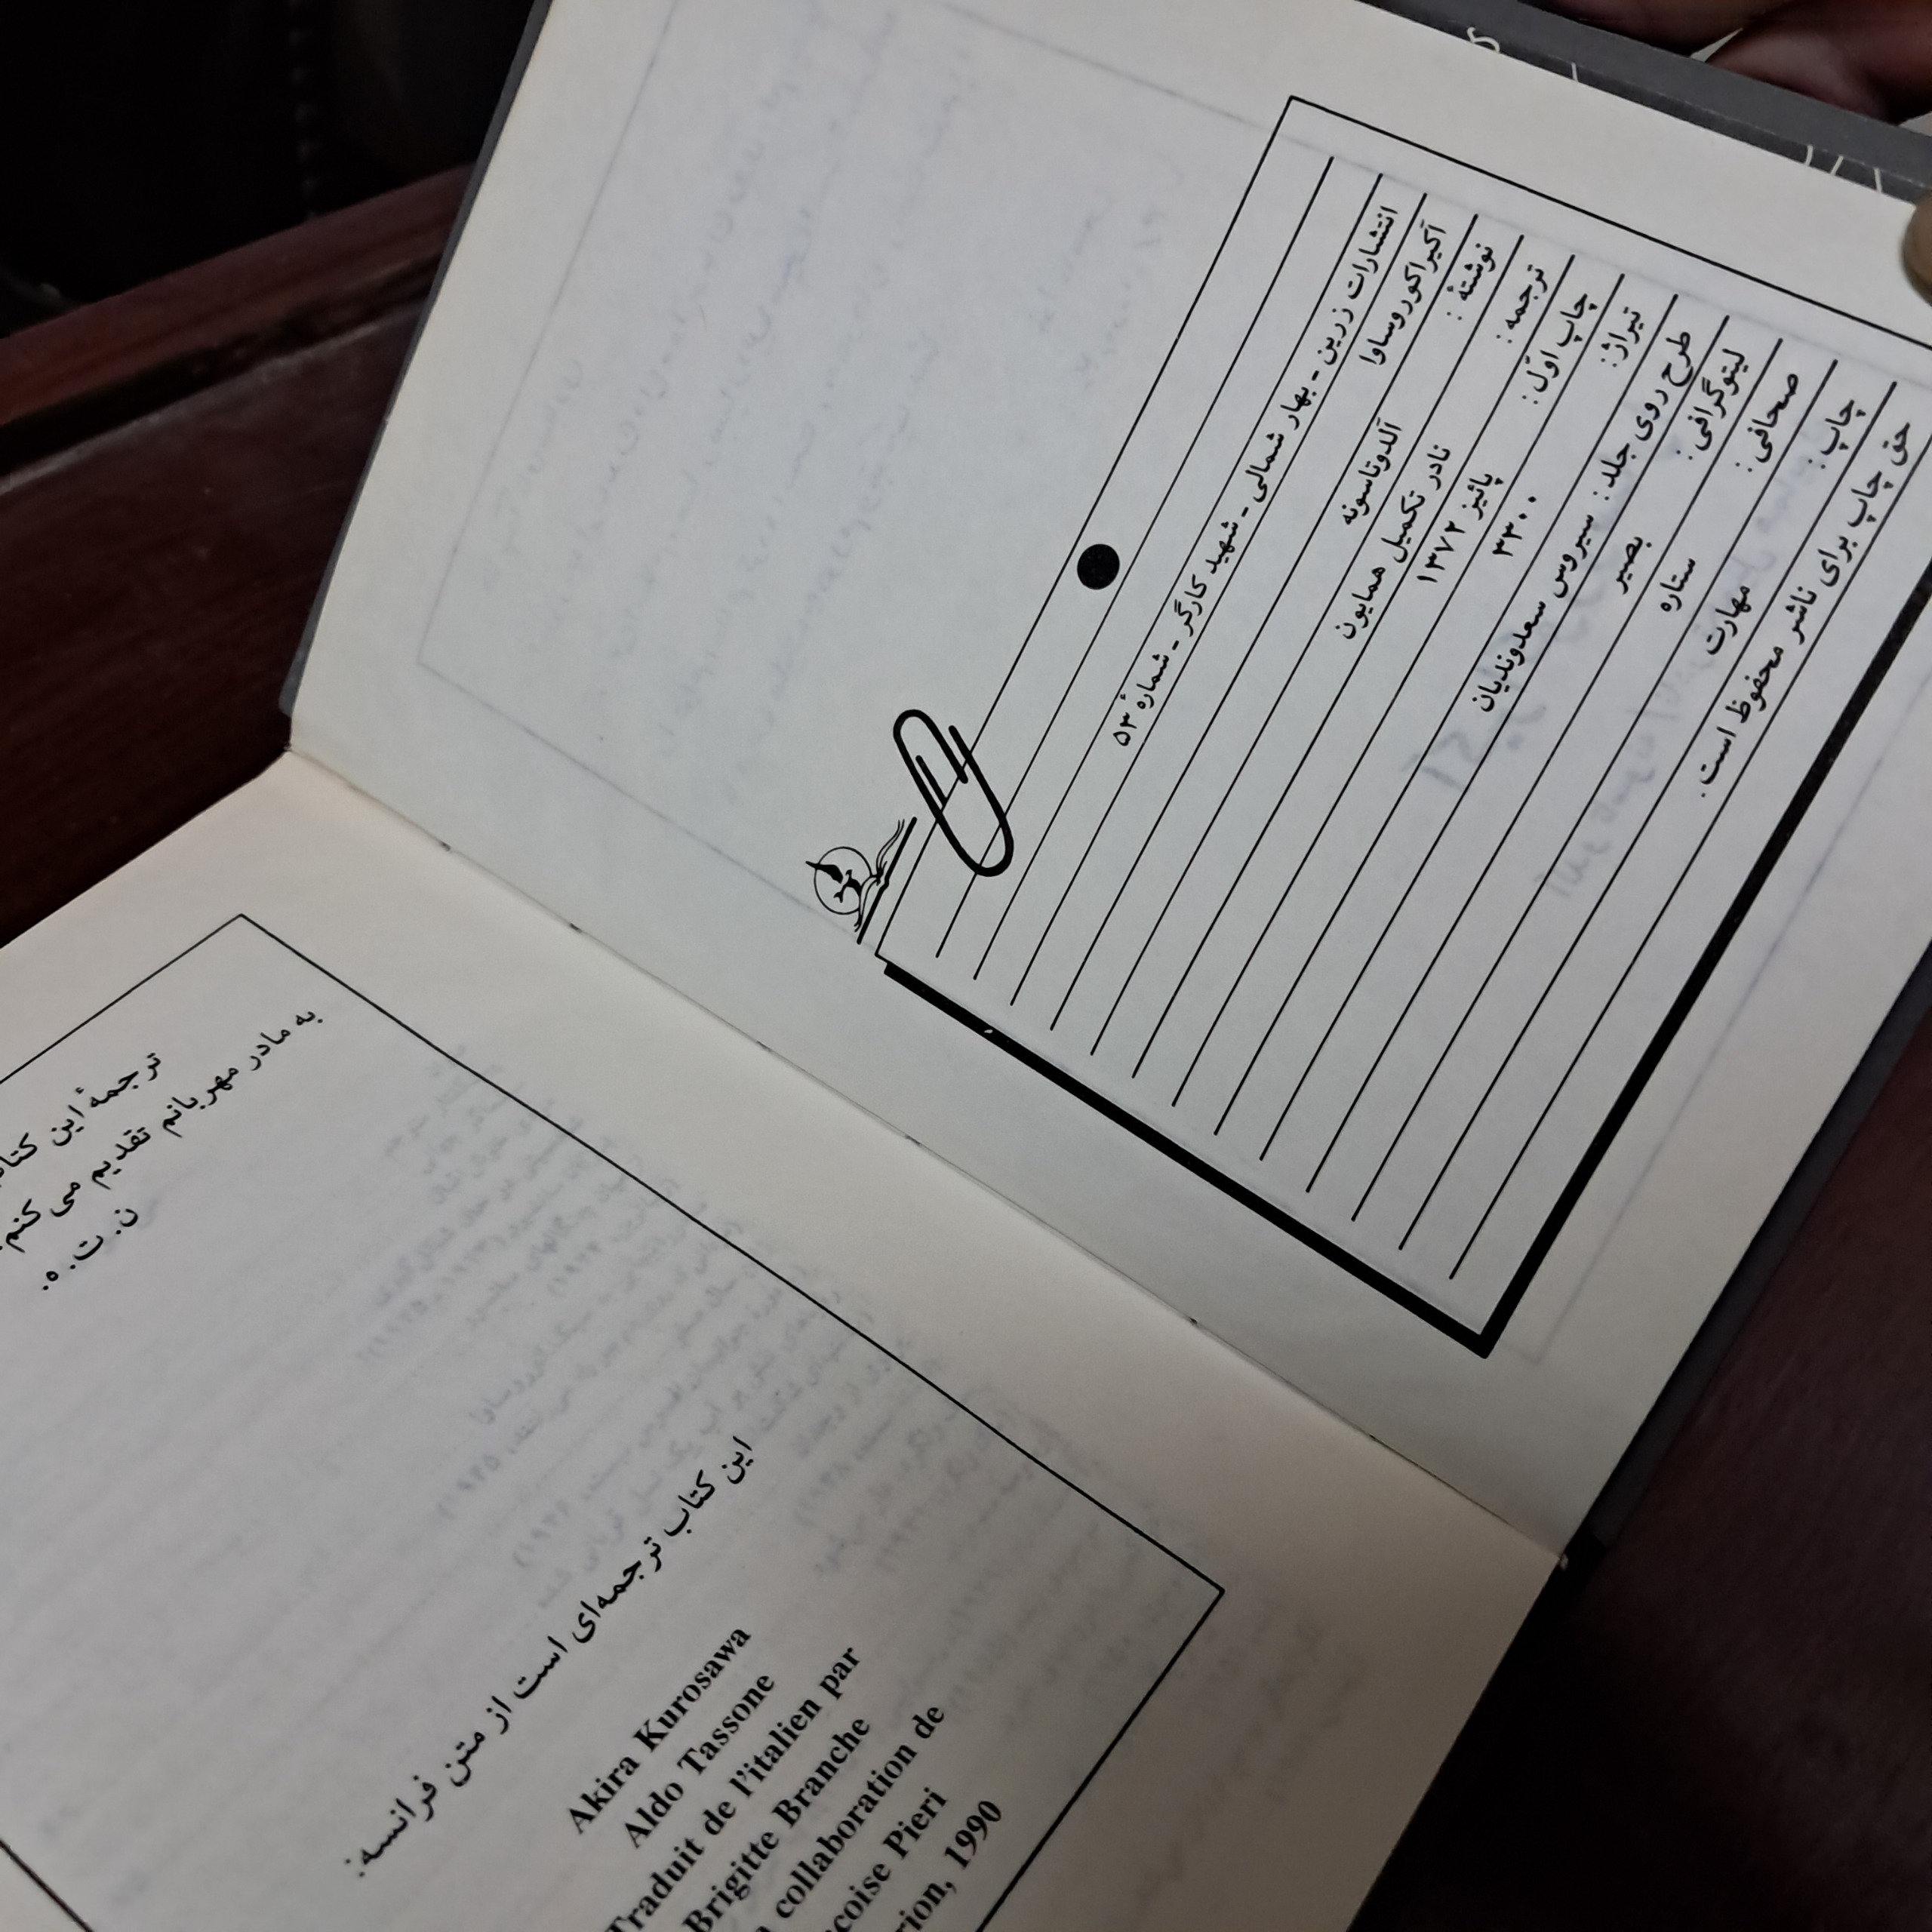 انتشارات زرین - بهار شمالی - شهید کارگر - شمارهٔ ۵۳
آکیراکوروساوا
نوشتهٔ : آلدوتاسونه
ترجمه: نادر تکمیل همایون
چاپ اوّل: پائیز ۱۳۷۲
تیراژ: ۳۳۰۰
طرح روی جلد: سیروس سعدوندیان
لیتوگرافی: بصیر
صحافی: ستاره
چاپ: مهارت
حق چاپ برای ناشر محفوظ است.
ترجمهٔ این
به مادر مهربانم تقدیم می کنم.
ن. ت. ه.
این کتاب ترجمه‌ای است از متن فرانسه:
Akira Kurosawa
Aldo Tassone
Traduit de l'italien par
Brigitte Branche
collaboration de
Pieri
1990